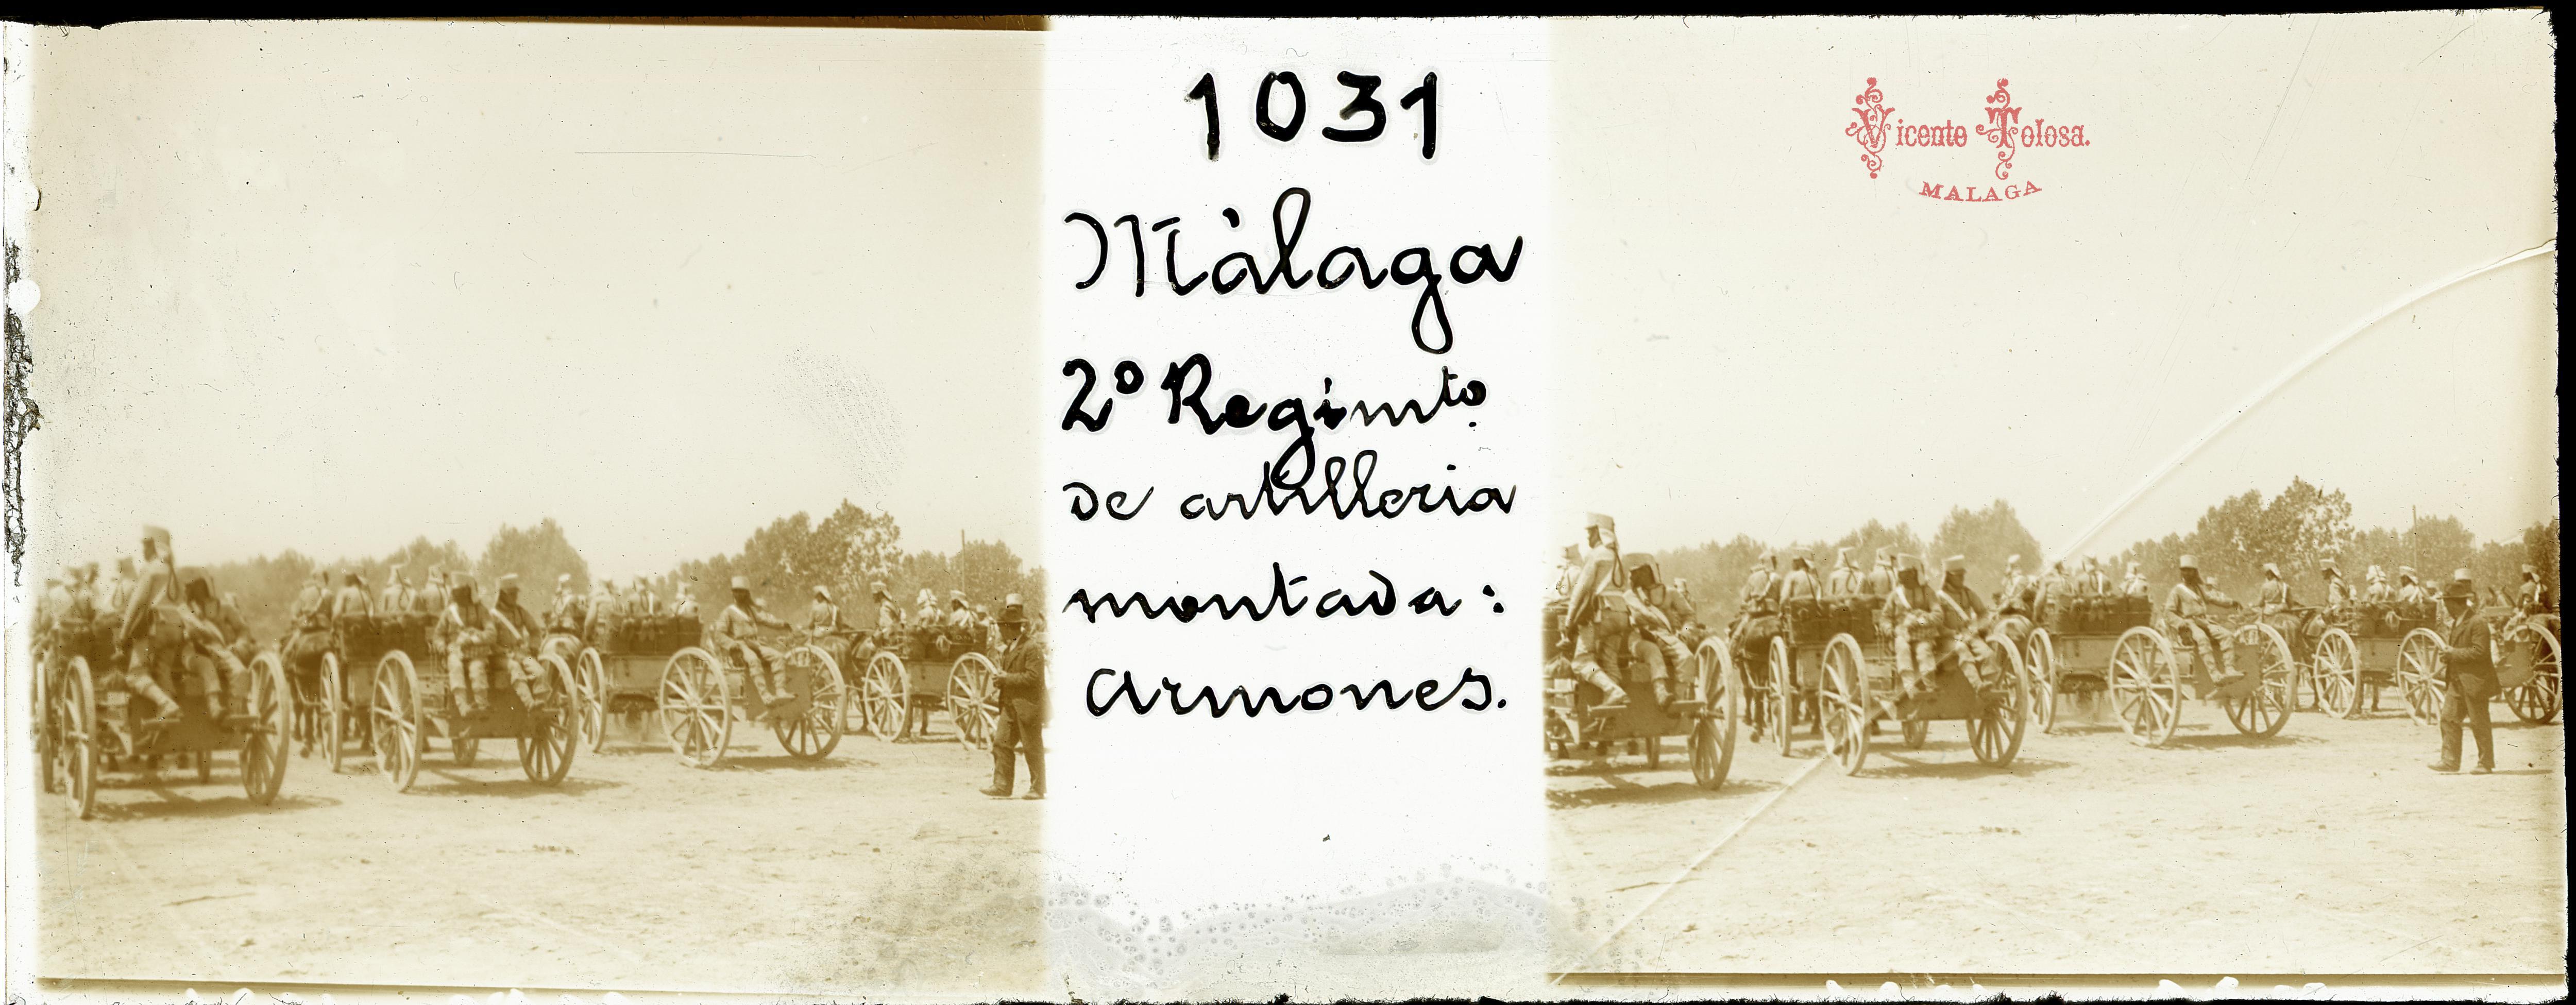 1031
Màlaga
2º Regimto.
de artilleria
montada:
Armones.
Vicente Tolosa.
MALAGA